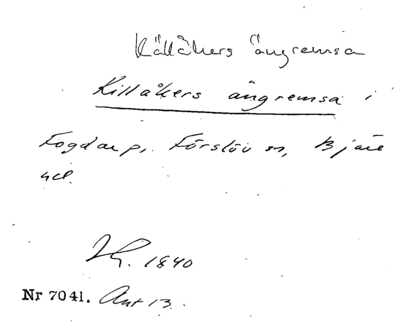 Källåkers ängremsa
Killåkers ängremsa i
Fogdarp, Förslöv sn, Bjäre
hd.
1840
Nr 7041. Akt 13.